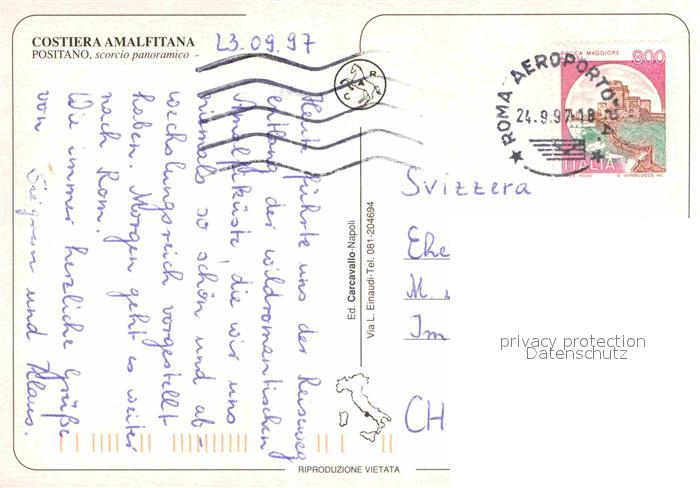 COSTIERA AMALFITANA
POSITANO, scorcio panoramico
23.09.97
Heute führte uns der Reiseweg
entlang der wildromantischen
Amalfiküste, die wir uns
niemals so schön und ab-
wechslungsreich vorgestellt
haben. Morgen geht es weiter
nach Rom.
Wie immer herzliche Grüße
von
und Klaus.
Ed. Carcavallo-Napoli
Via L. Einaudi-Tel. 081-204694
ROCCA MAGGIORE
800
ITALIA
ROMA AEROPORTO
24.9.97-18
Svizzera
Ehe
M.
Im
CH
privacy protection
Datenschutz
RIPRODUZIONE VIETATA